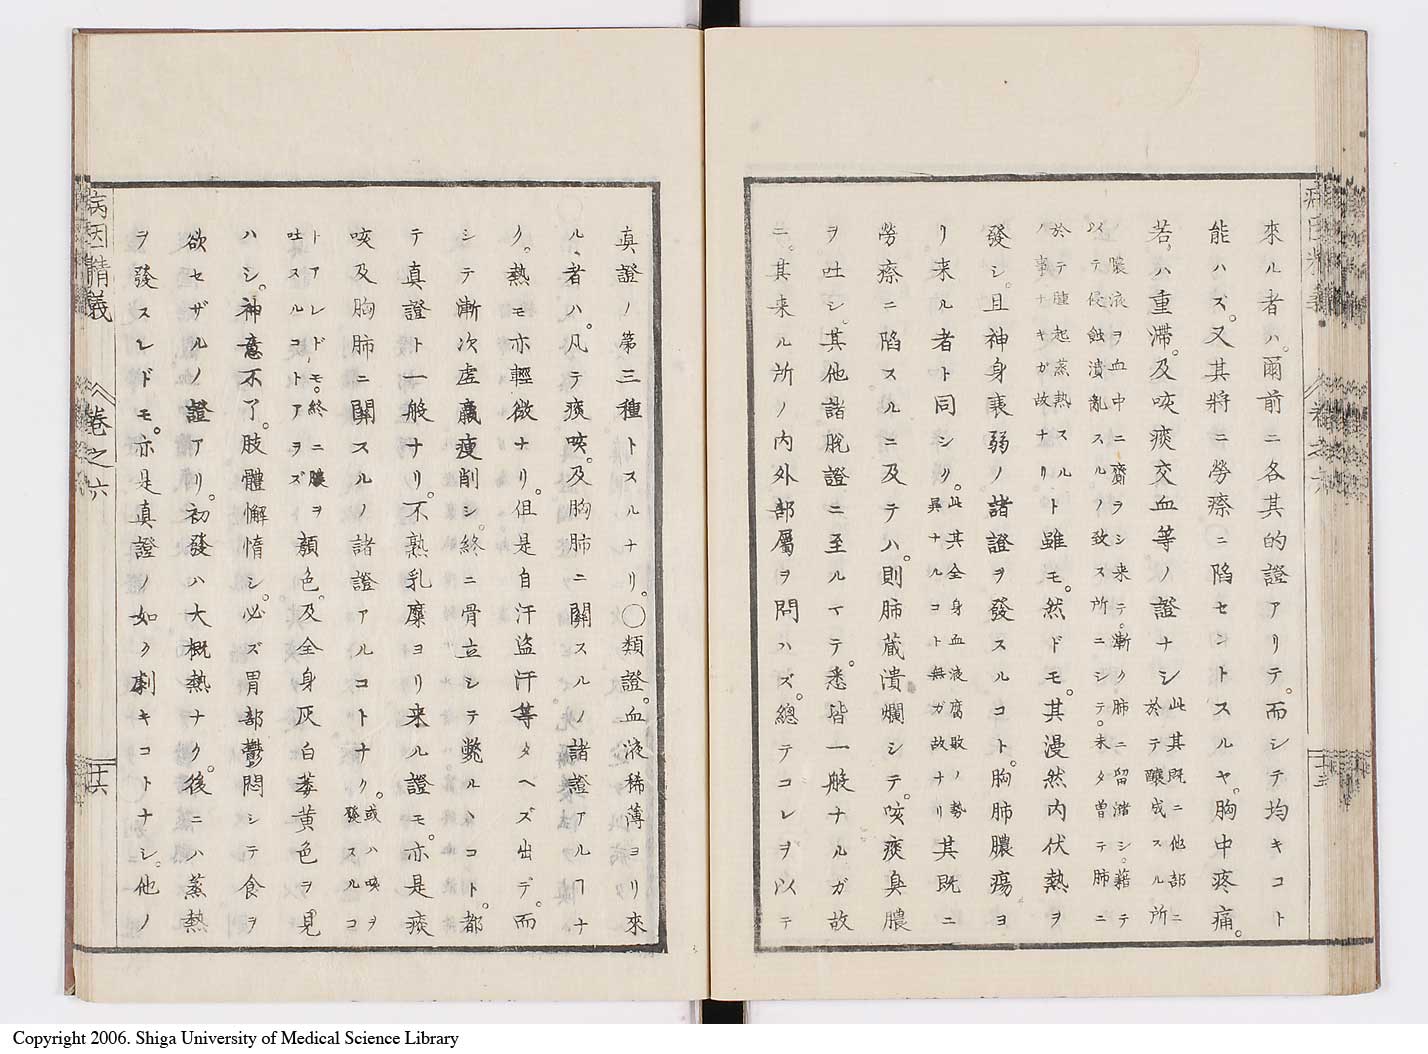 來ル者ハ。爾前ニ各其的證アリテ。而シテ均キコト
能ハズ。又其將ニ勞瘵ニ陷セントスルヤ。胸中疼痛。
若ハ重滯。及咳痰交血等ノ證ナシ此其既ニ他部ニ
於テ釀成スル所
ノ膿液ヲ血中ニ齎ヲシ来テ。漸ク肺ニ留瀦シ。藉テ
以テ侵蝕潰亂スルノ致ス所ニシテ。未タ曽テ肺ニ
於テ腫起蒸熱スル
ノ事ナキガ故ナリト雖モ。然ドモ。其漫然内伏熱ヲ
發シ。且神身衰弱ノ諸證ヲ發スルコト。胸肺膿瘍ヨ
リ来ル者ト同シク。此其全身血液腐敗ノ勢
異ナルコト無ガ故ナリ其既ニ
勞瘵ニ陷スルニ及テハ。則肺蔵潰爛シテ。咳痰臭膿
ヲ吐シ。其他諸脫證ニ至ルマテ。悉皆一般ナルガ故
ニ。其来ル所ノ内外部屬ヲ問ハズ。總テコレヲ以テ
病因精義
巻之六
十五
真證ノ第三種トスルナリ。〇類證。血液稀薄ヨリ來
ル者ハ。凡テ痰咳。及胸肺ニ關スルノ諸證アルヿナ
ク。熱モ亦輕微ナリ。但是自汗盜汗等タヘズ出デ。而
シテ漸次虚羸瘦削シ。終ニ骨立シテ斃ルヽコト。都
テ真證ト一般ナリ。不熟乳糜ヨリ来ル證モ。亦是痰
咳及胸肺ニ關スルノ諸證アルコトナク。或ハ咳ヲ
發スルコ
トアレドモ。終ニ膿ヲ
吐スルコトアラズ顔色。及全身灰白萎黄色ヲ見
ハシ。神意不了。肢體懈惰シ。必ズ胃部鬱悶シテ食ヲ
欲セザルノ證アリ。初發ハ大概熱ナク。後ニハ蒸熱
ヲ發スレドモ。亦是真證ノ如ク劇キコトナシ。他ノ
病因精義
巻之六
十六
Copyright 2006. Shiga University of Medical Science Library